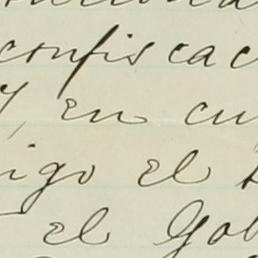 confiscac
y, en cu
igo el
el Gob